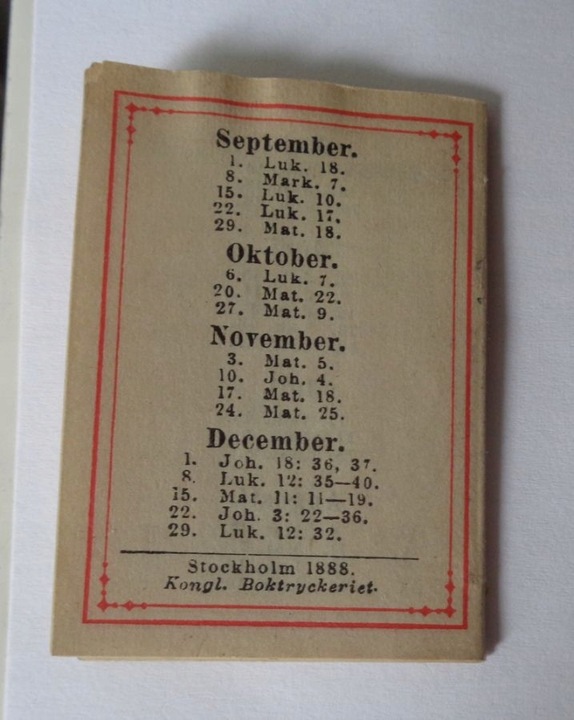 September.
1. Luk. 18.
8. Mark. 7.
15. Luk. 10.
22. Luk. 17.
29. Mat. 18.
Oktober.
6. Luk. 7.
20. Mat. 22.
27. Mat. 9.
November.
3. Mat. 5.
10. Joh. 4.
17. Mat. 18.
24. Mat. 25.
December.
1. Joh. 18: 36, 37.
8. Luk. 12: 35—40.
15. Mat. 11: 11—19.
22. Joh. 3: 22—36.
29. Luk. 12: 32.
Stockholm 1888.
Kongl. Boktryckeriet.